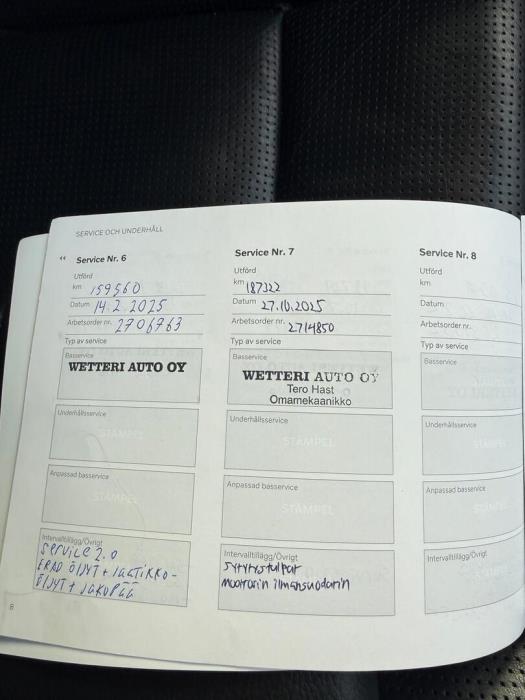 SERVICE OCH UNDERHÅLL
Service Nr. 6
Utförd
km 159560
Datum 14.2.2025
Arbetsorder nr. 2706763
Typ av service
Basservice
WETTERI AUTO OY
Underhållsservice
STAMPEL
Anpassad basservice
STAMPEL
Intervalltillägg/Övrigt
Service 2.0
ERAD ÖLJYT + LAATIKKO-
ÖLJYT + JAKOPÄÄ
Service Nr. 7
Utförd
km 187322
Datum 27.10.2025
Arbetsorder nr. 2714850
Typ av service
Basservice
WETTERI AUTO OY
Tero Hast
Omamekaanikko
Underhållsservice
STAMPEL
Anpassad basservice
STAMPEL
Intervalltillägg/Övrigt
sytytystulpat
moottorin ilmansuodatin
Service Nr. 8
Utförd
km
Datum
Arbetsorder nr.
Typ av service
Basservice
Underhållsservice
Anpassad basservice
Intervalltillägg/Övrigt
8